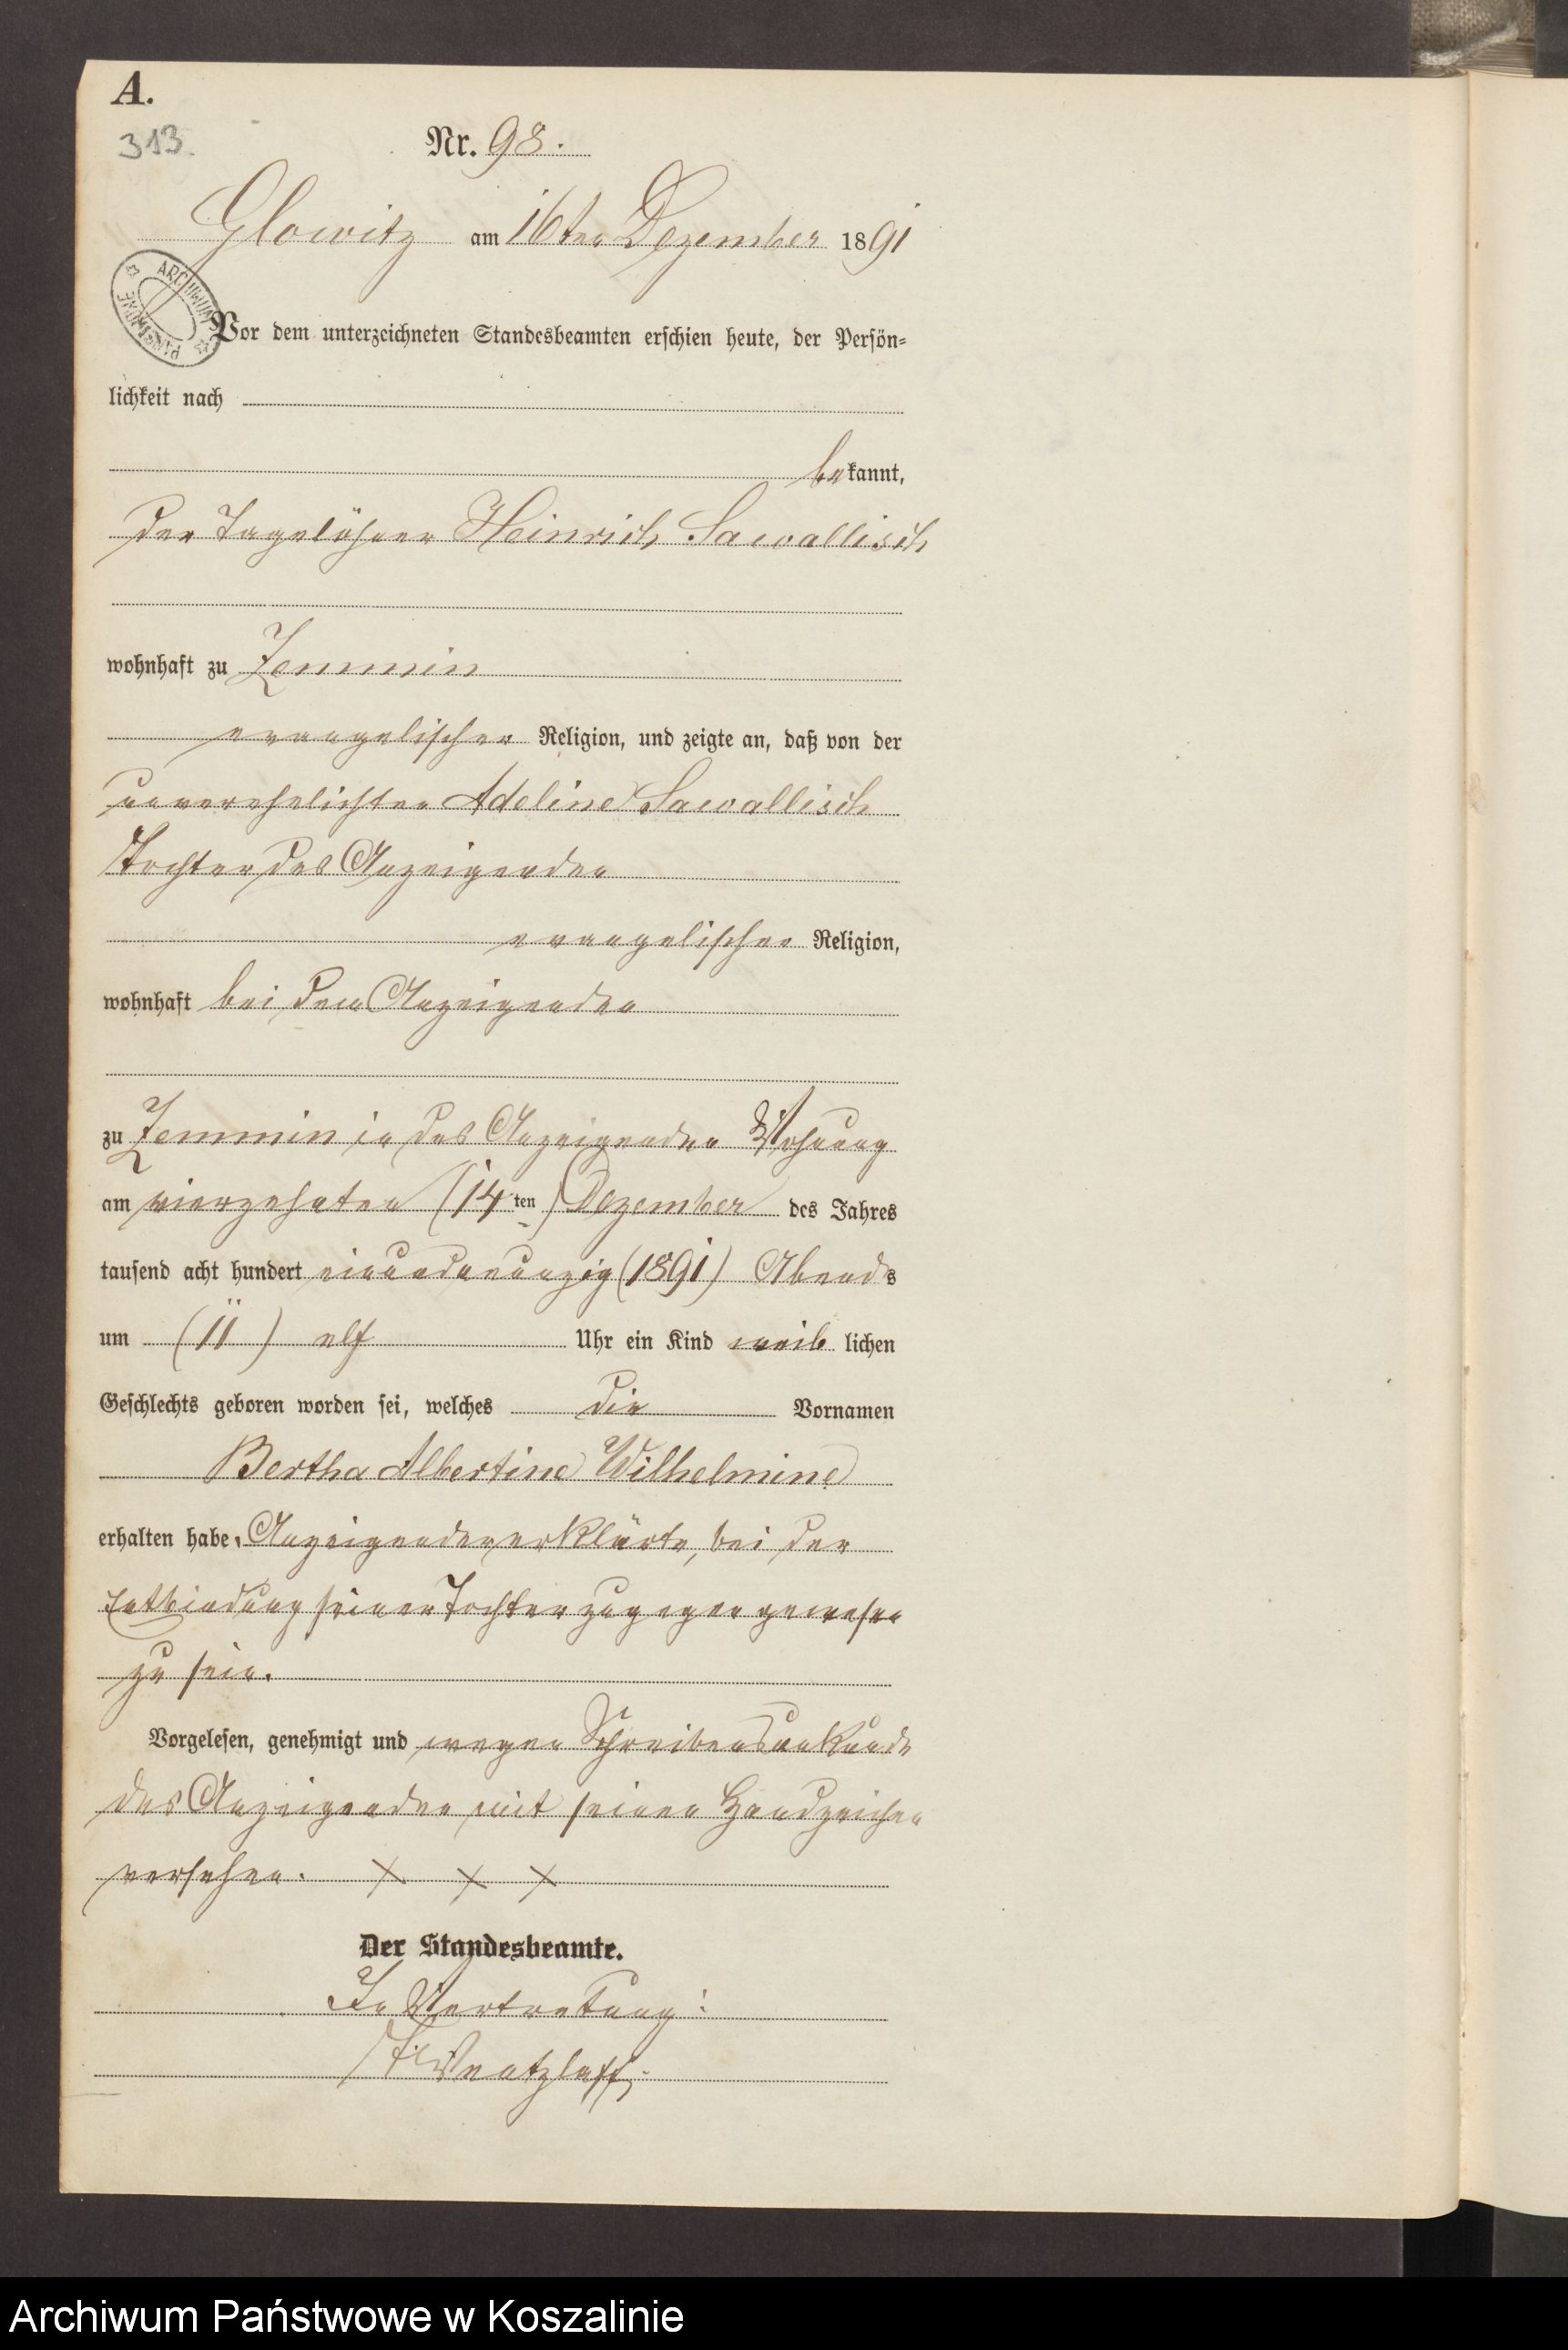 A.
313.
Nr. 98.
Glowitz am 16ten Dezember 1891
ARCHIWUM PAŃSTWOWE
Vor dem unterzeichneten Standesbeamten erschien heute, der Persön=
lichkeit nach
bekannt,
der Tagelöhner Heinrich Sawallisch
wohnhaft zu Zemmin
evangelischer Religion, und zeigte an, daß von der
unverehelichten Adeline Sawallisch
Tochter des Anzeigenden
evangelischer Religion,
wohnhaft bei dem Anzeigenden
zu Zemmin in des Anzeigenden Wohnung
am vierzehnten (14ten) Dezember des Jahres
tausend acht hundert einundneunzig (1891) Abends
um (11) elf Uhr ein Kind weib lichen
Geschlechts geboren worden sei, welches die Vornamen
Bertha Albertine Wilhelmine
erhalten habe, Anzeigender erklärte, bei der
Entbindung seiner Tochter zugegen gewesen
zu sein.
Vorgelesen, genehmigt und wegen Schreibensunkunde
des Anzeigenden mit seinen Handzeichen
versehen. X X X
Der Standesbeamte.
In Vertretung:
Wentzlaff.
Archiwum Państwowe w Koszalinie